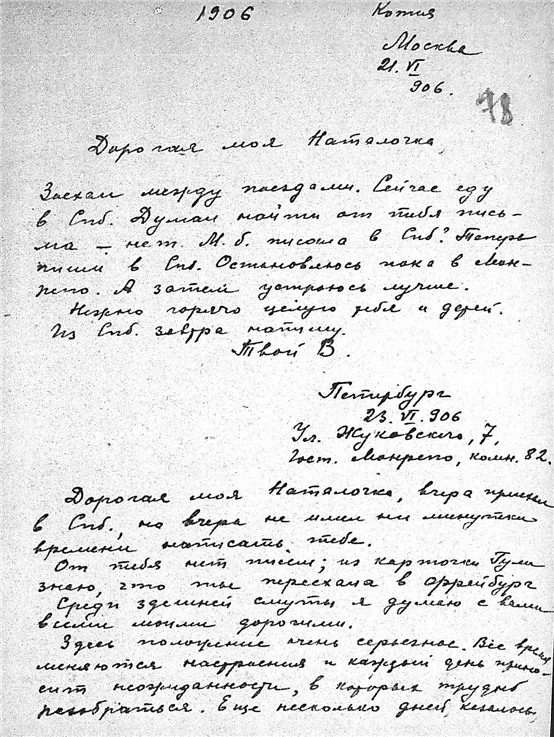 1906
Копия
Москва
21.VI
906.
78
Дорогая моя Наталочка
Заехал между поездами. Сейчас еду
в Спб. Думал найти от тебя пись-
ма – нет. М.б. писала в Спб? Теперь
пиши в Спб. Остановлюсь пока в Мон-
репо. А затем устроюсь лучше.
Нежно горячо целую тебя и детей.
Из Спб. завтра напишу.
Твой В.
Петербург
23.VI.906
Ул. Жуковского, 7,
Гост. Монрепо, комн. 82.
Дорогая моя Наталочка, вчера приехал
в Спб., но вчера не имел ни минутки
времени написать тебе.
От тебя нет писем; из карточки Гули
знаю, что ты переехала в Фрейбург
Среди здешней смуты я думаю с вами
всеми моими дорогими.
Здесь положение очень серьезное. Все время
меняются настроения и каждый день прино-
сит неожиданности, в которых трудно
разобраться. Еще несколько дней, казалось,